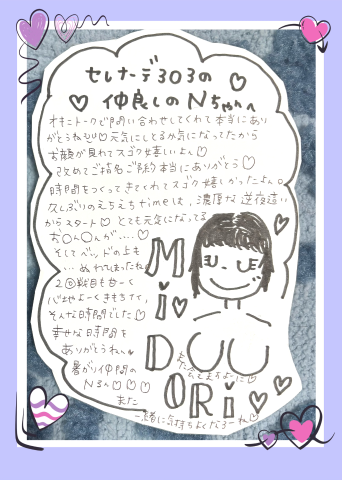 セレナーデ303の
仲良しのNちゃんへ
オキニトークで問い合わせしてくれて本当にあり
がとうね 元気にしてるか気になってたから
お顔が見れてスゴク嬉しいよん♡
改めてご指名ご予約本当にありがとう♡
時間をつくってきてくれてスゴク嬉しかったよん。
久しぶりのえちえちtimeは、濃厚な逆夜這い
からスタート♡とても元気になってる
お〇ん〇んが.....♡
そしてベッドの上も
...ぬれてしまったね
2回戦目も
そんな時間でした♡
幸せな時間を
ありがとうねん
暑がり仲間の
Nさん♡♡♡
また
一緒に気持ちよくなろーね♡
また会えますように♡
MiDORi